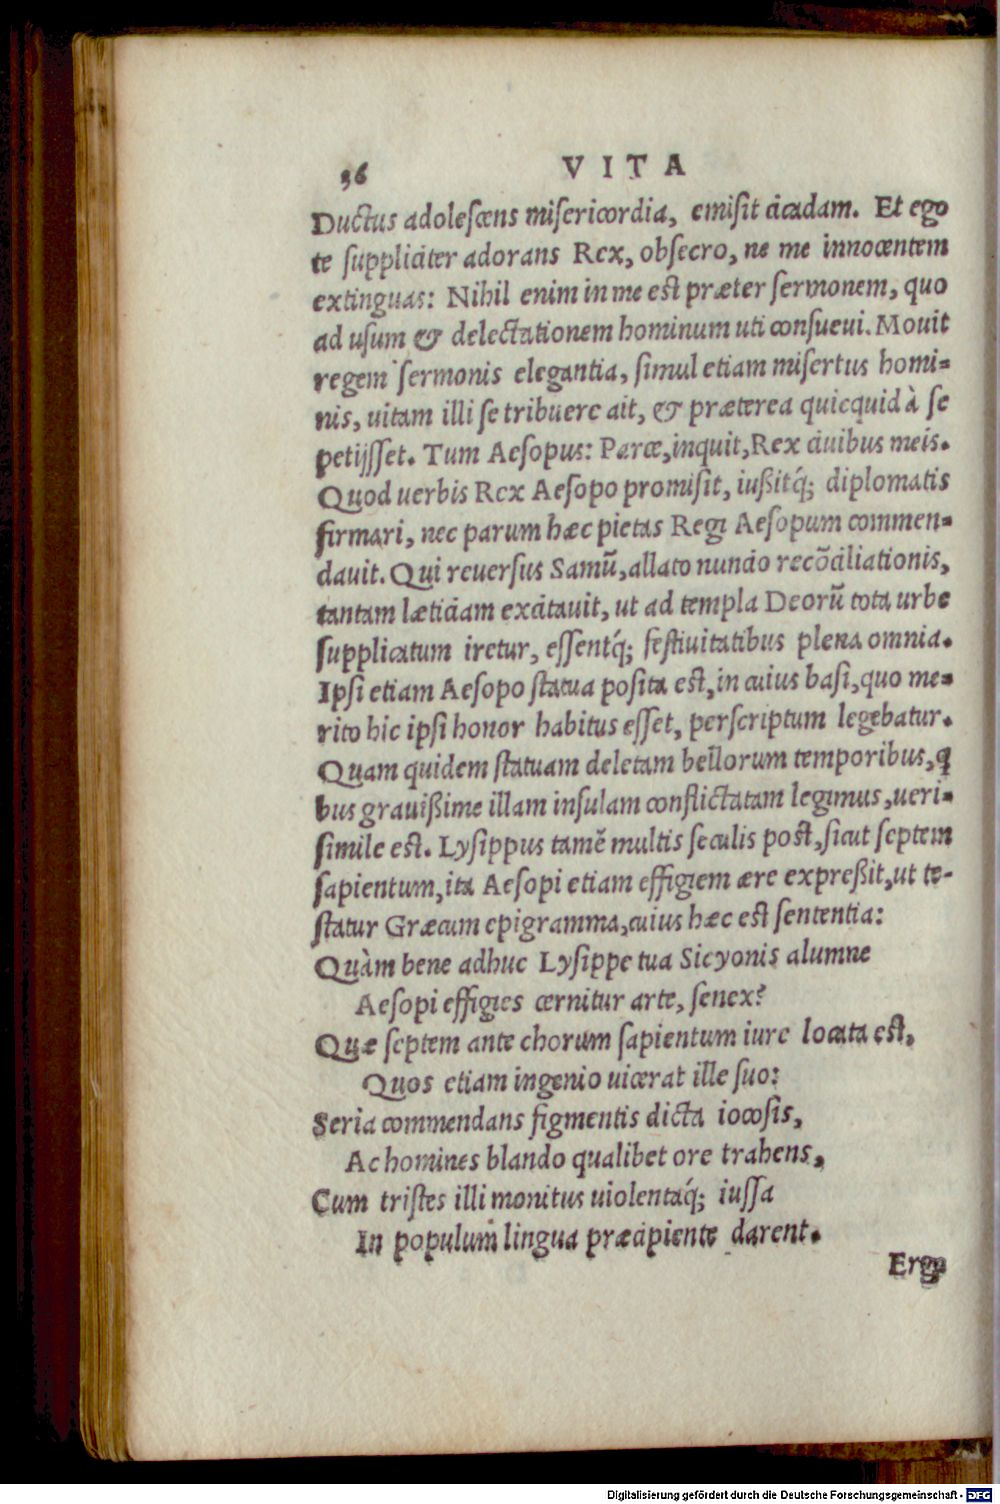 36 VITA
Ductus adolescens misericordia, emisit cicadam. Et ego
te suppliciter adorans Rex, obsecro, ne me innocentem
extinguas: Nihil enim in me est præter sermonem, quo
ad usum & delectationem hominum uti consueui. Mouit
regem sermonis elegantia, simul etiam misertus homi=
nis, uitam illi se tribuere ait, & præterea quicquid à se
petijsset. Tum Aesopus: Parce, inquit, Rex ciuibus meis.
Quod uerbis Rex Aesopo promisit, iußitq́; diplomatis
firmari, nec parum hæc pietas Regi Aesopum commen=
dauit. Qui reuersus Samũ, allato nuncio recõciliationis,
tantam læticiam excitauit, ut ad templa Deorũ tota urbe
supplicatum iretur, essentq́; festiuitatibus plena omnia.
Ipsi etiam Aesopo statua posita est, in cuius basi, quo me=
rito hic ipsi honor habitus esset, perscriptum legebatur.
Quam quidem statuam deletam bellorum temporibus, q̃
bus grauißime illam insulam conflictatam legimus, ueri=
simile est. Lysippus tamẽ multis seculis post, sicut septem
sapientum, ita Aesopi etiam effigiem ære expreßit, ut te-
statur Græcum epigramma, cuius hæc est sententia:
Quàm bene adhuc Lysippe tua Sicyonis alumne
Aesopi effigies cernitur arte, senex?
Quæ septem ante chorum sapientum iure locata est,
Quos etiam ingenio uicerat ille suo:
Seria commendans figmentis dicta iocosis,
Ac homines blando qualibet ore trahens,
Cum tristes illi monitus uiolentaq́; iussa
In populum lingua præcipiente darent.
Ergo
Digitalisierung gefördert durch die Deutsche Forschungsgemeinschaft - DFG